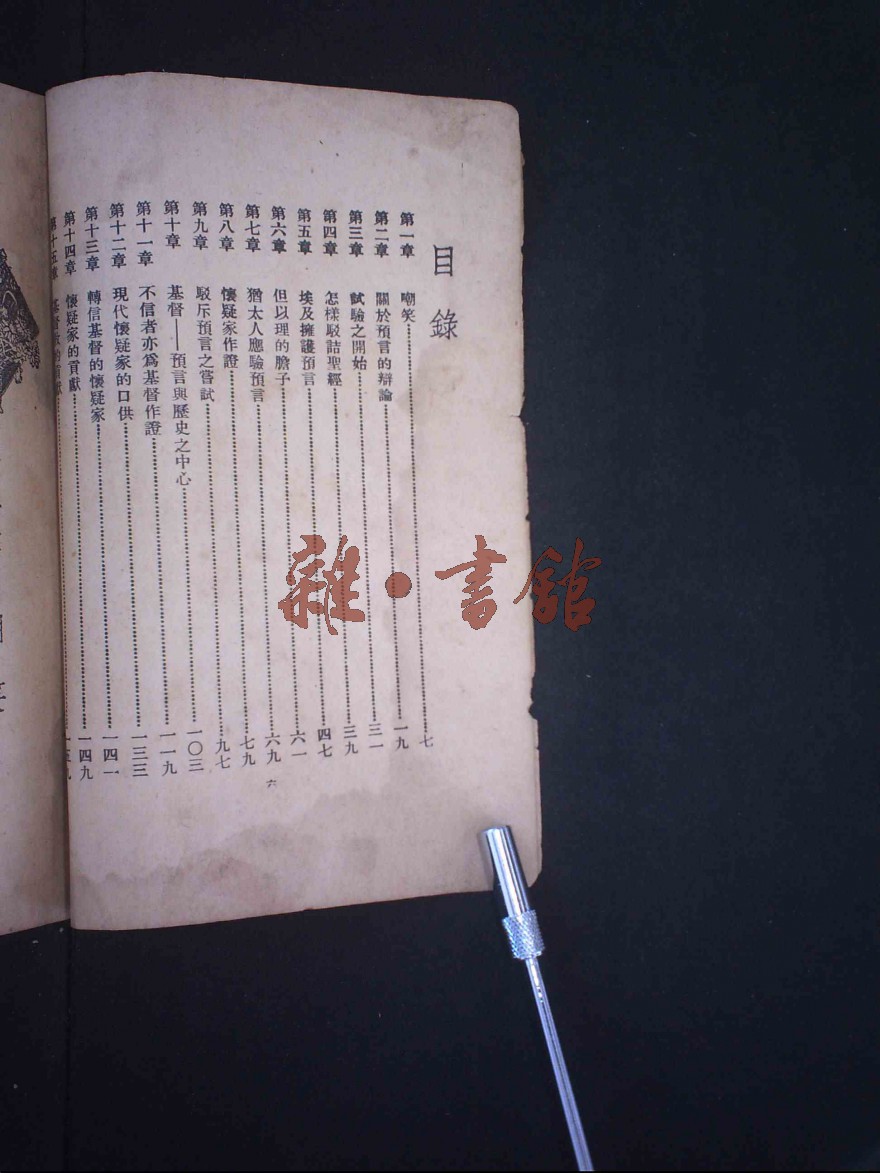 目錄
第一章 嘲笑 七
第二章 關於預言的辯論 一九
第三章 試驗之開始 三一
第四章 怎樣駁詰聖經 三九
第五章 埃及擁護預言 四七
第六章 但以理的膽子 六一
第七章 猶太人應驗預言 六九
第八章 懷疑家作證 七九
第九章 駁斥預言之嘗試 九七
第十章 基督——預言與歷史之中心 一〇三
第十一章 不信者亦為基督作證 一一九
第十二章 現代懷疑家的口供 一三三
第十三章 轉信基督的懷疑家 一四一
第十四章 懷疑家的貢獻 一四九
第十五章 基督教的貢獻
六
雜·書館